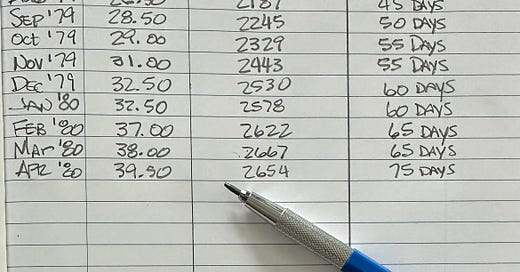 2187 45 DAYS
SEP '79 28.50 2245 50 DAYS
Oct '79 29.00 2329 55 DAYS
NOV '79 31.00 2443 55 DAYS
DEC '79 32.50 2530 60 DAYS
JAN '80 32.50 2578 60 DAYS
FEB '80 37.00 2622 65 DAYS
Mar '80 38.00 2667 65 DAYS
APR '80 39.50 2654 75 DAYS